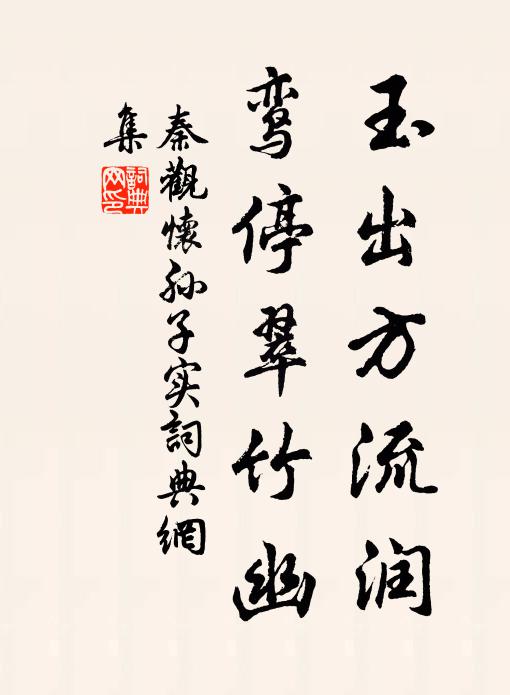 玉出方流润
鸾停翠竹幽
秦觀懷孙子实詞典網
集
詞典
网印